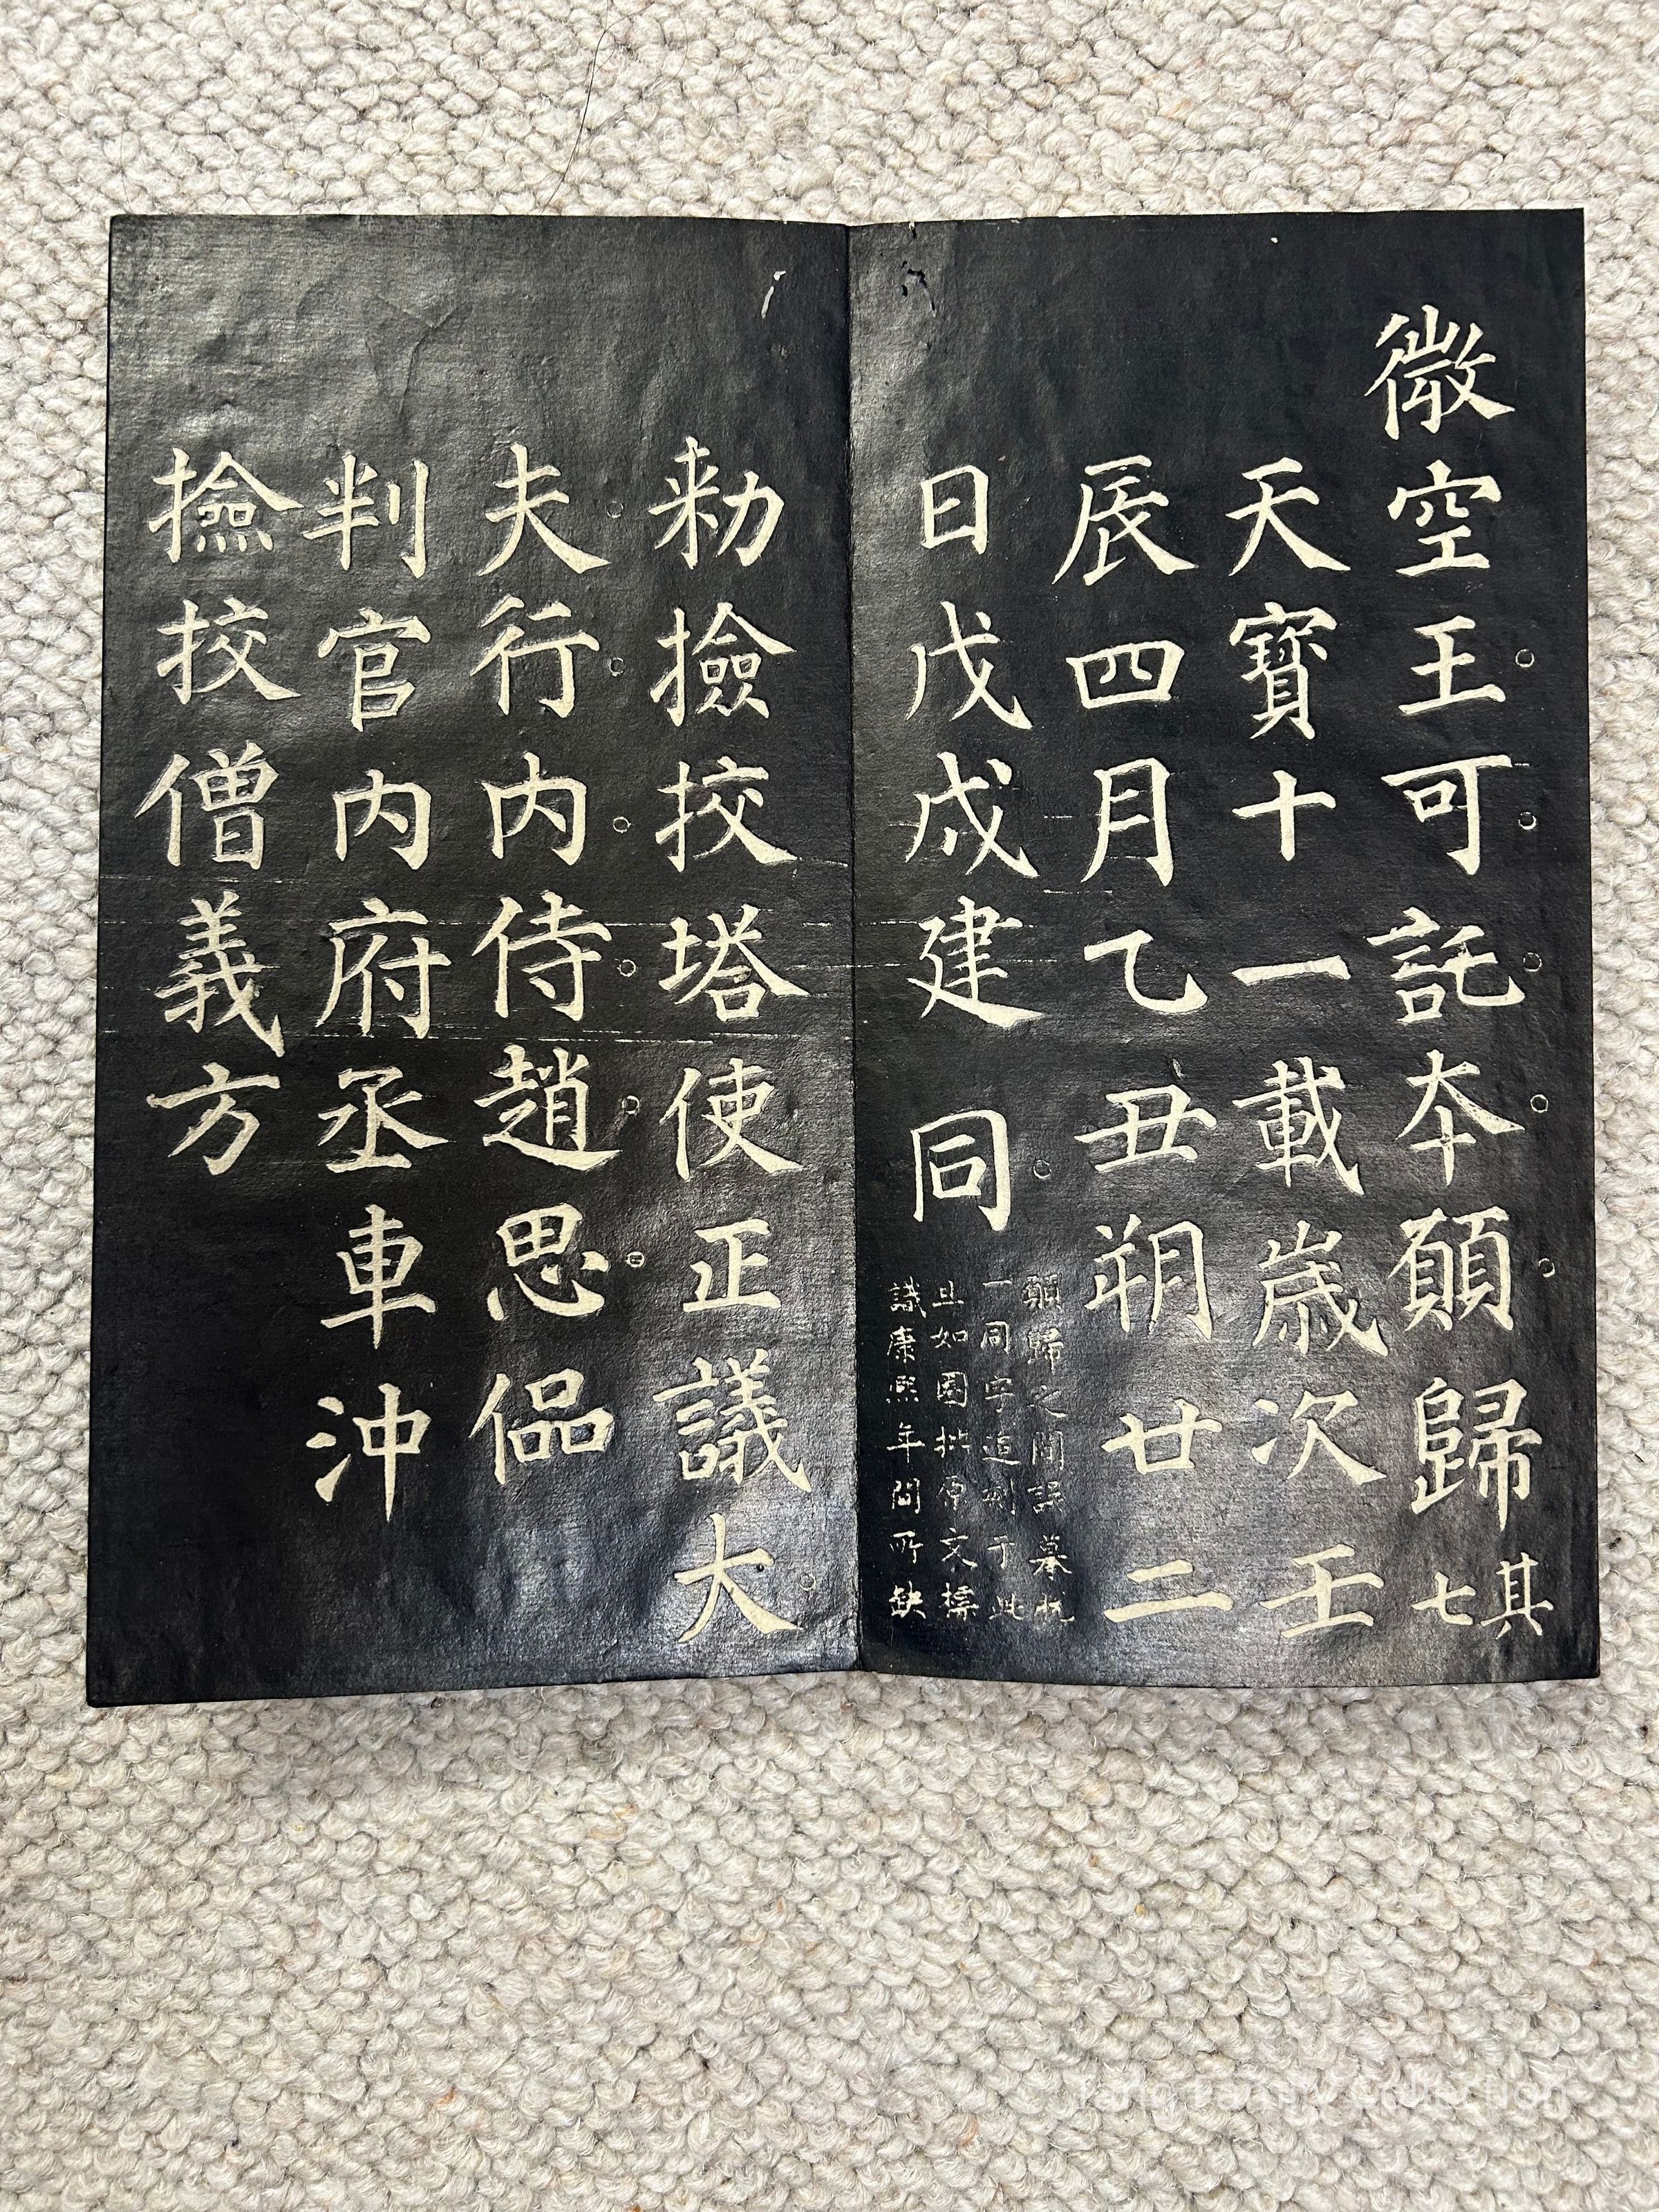 微空王可託本願歸其七
天寶十一載歲次壬
辰四月乙丑朔廿二
日戊戌建 同
歸之間誤摹
一同字追刻于此
且如圈 原文
識康熙年間所缺
勅撿挍塔使正議大
夫行内侍趙思侃
判官内府丞車沖
撿挍僧義方